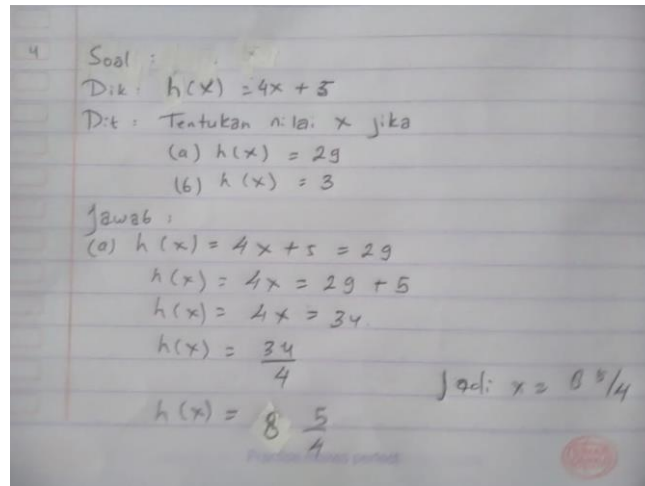 4
Soal :
Dik : h(x) = 4x + 5
Dit : Tentukan nilai x jika
(a) h(x) = 29
(b) h(x) = 3
Jawab :
(a) h(x) = 4x + 5 = 29
h(x) = 4x = 29 + 5
h(x) = 4x = 34
h(x) = 34/4
Jadi x = 8 5/4
h(x) = 8 5/4
Practice makes perfect